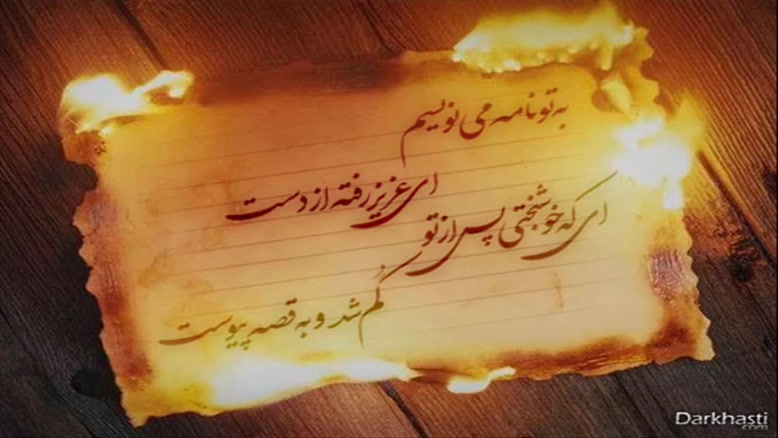 به تو نامه می نویسم
ای عزیز رفته از دست
ای که خوشبختی پس از تو
گم شد و به قصه پیوست
Darkhasti
.com